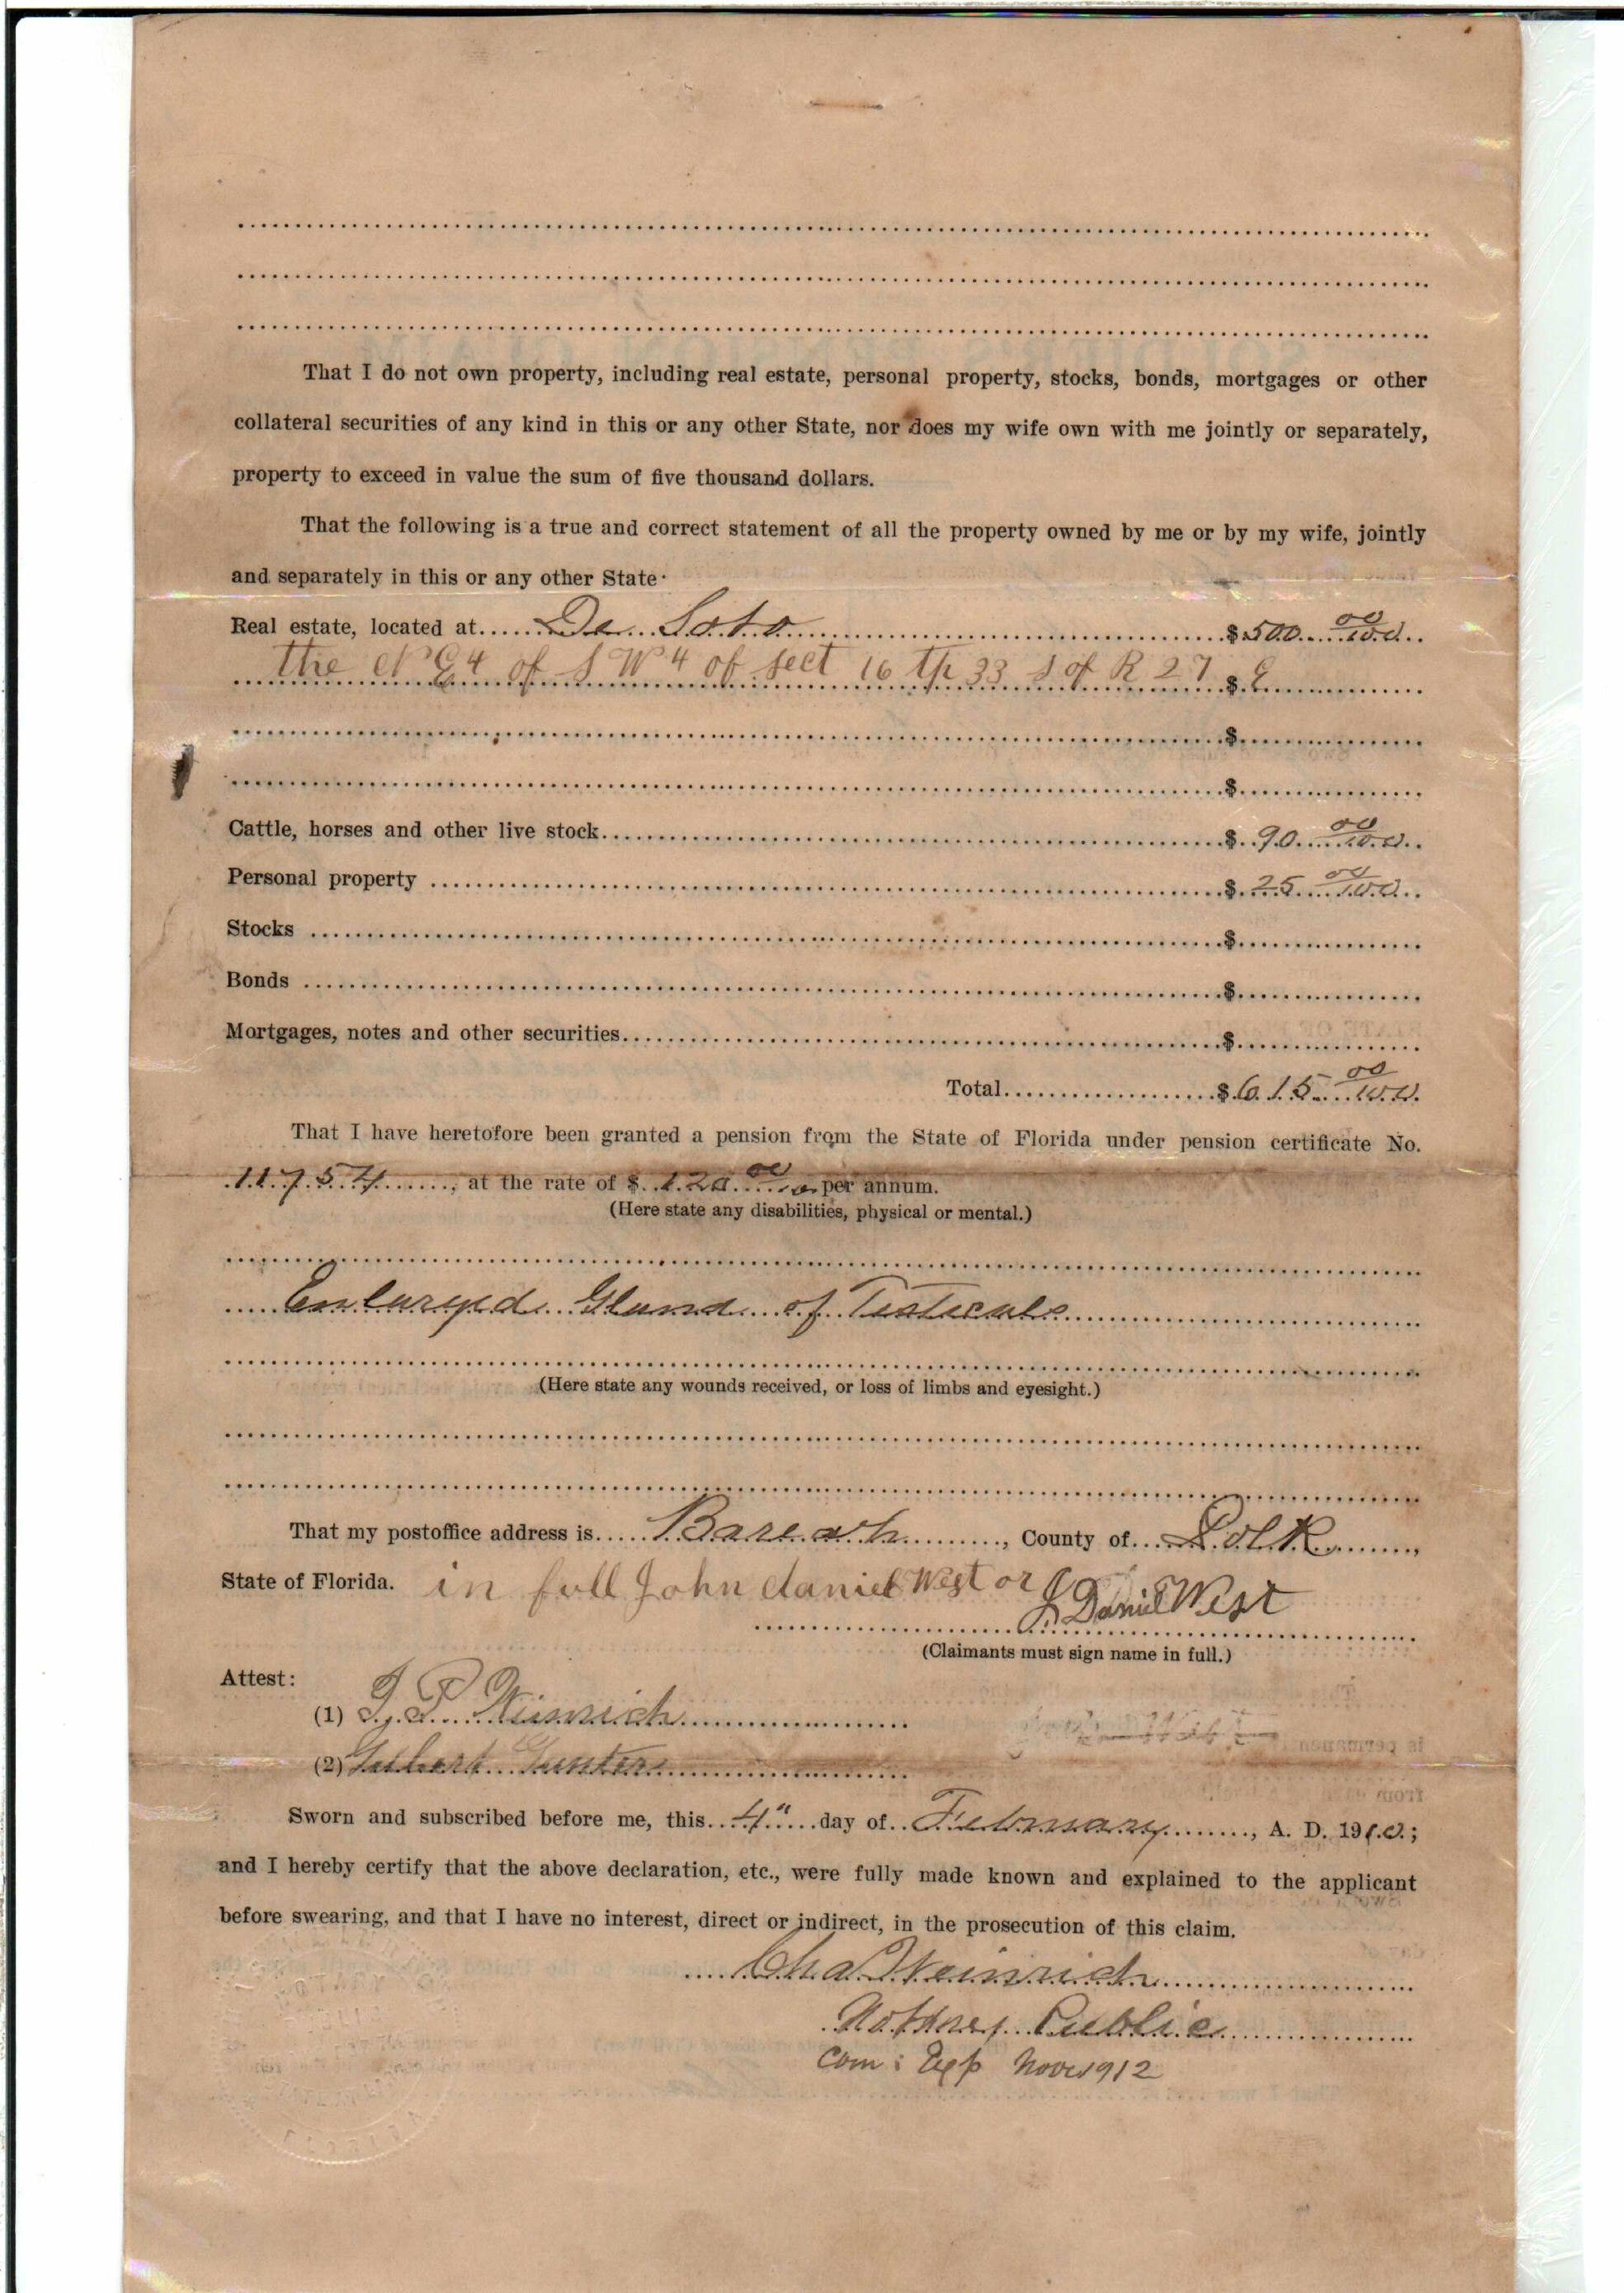 That I do not own property, including real estate, personal property, stocks, bonds, mortgages or other
collateral securities of any kind in this or any other State, nor does my wife own with me jointly or separately,
property to exceed in value the sum of five thousand dollars.
That the following is a true and correct statement of all the property owned by me or by my wife, jointly
and separately in this or any other State
Real estate, located at De Soto $500 00/100
the N E 4 of S W 4 of sect 16 tp 33 S of R 27 $ E
$
$
Cattle, horses and other live stock $ 90 00/100
Personal property $ 25 00/100
Stocks $
Bonds $
Mortgages, notes and other securities $
Total $ 615 00/100
That I have heretofore been granted a pension from the State of Florida under pension certificate No.
11754, at the rate of $ 120 00 per annum.
(Here state any disabilities, physical or mental.)
Enlargd Gland of Testicals
(Here state any wounds received, or loss of limbs and eyesight.)
That my postoffice address is Bareah, County of Polk,
State of Florida. in full John daniel West or
J Daniel West
(Claimants must sign name in full.)
Attest:
(1) Weinrich
(2)
Sworn and subscribed before me, this 4" day of February, A. D. 1910;
and I hereby certify that the above declaration, etc., were fully made known and explained to the applicant
before swearing, and that I have no interest, direct or indirect, in the prosecution of this claim.
Cha Weinrich
Notary Public
Com: Exp Nov 1912